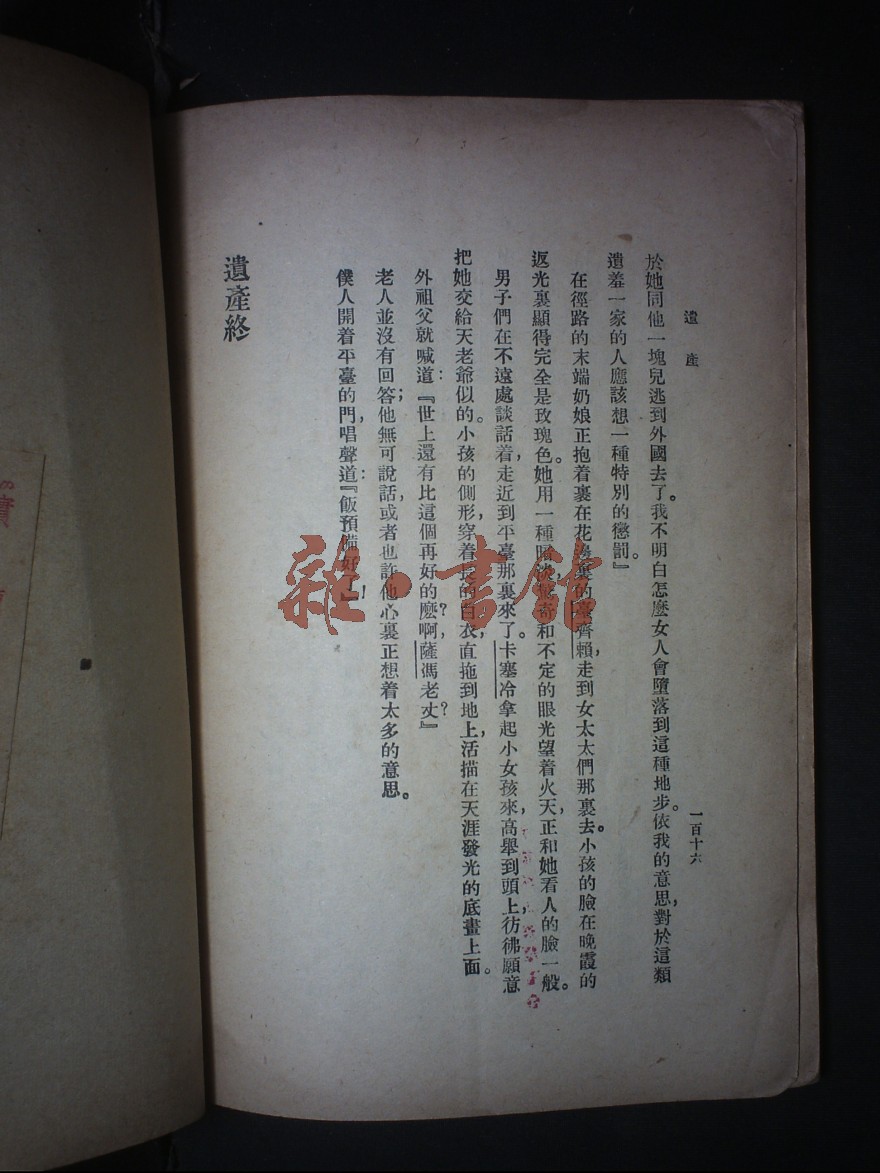 遺產
一百十六
於她同他一塊兒逃到外國去了。我不明白怎麽女人會墮落到這種地步。依我的意思，對於這類
遺羞一家的人應該想一種特別的懲罰。』
在徑路的末端奶娘正抱着裹在花邊裏的臺齊賴，走到女太太們那裏去。小孩的臉在晚霞的
返光裏顯得完全是玫瑰色。她用一種暗淡驚奇和不定的眼光望着火天，正和她看人的臉一般。
男子們在不遠處談話着，走近到平臺那裏來了。卡塞冷拿起小女孩來，高舉到頭上，彷彿願意
把她交給天老爺似的。小孩的側形，穿着長的白衣，直拖到地上，活描在天涯發光的底畫上面。
外祖父就喊道：『世上還有比這個再好的麽？啊，薩馮老丈？』
老人並沒有回答；他無可說話，或者也許他心裏正想着太多的意思。
僕人開着平臺的門，唱聲道：『飯預備好了！』
遺產終
雜·書館